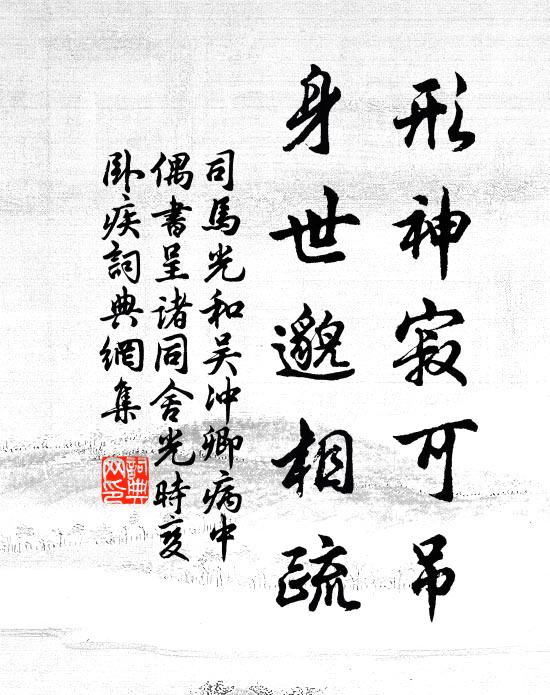 形神寂可吊
身世邈相疏
司馬光和吴冲卿病中
偶書呈諸同舍光時亦
卧疾詞典網集
詞典網印